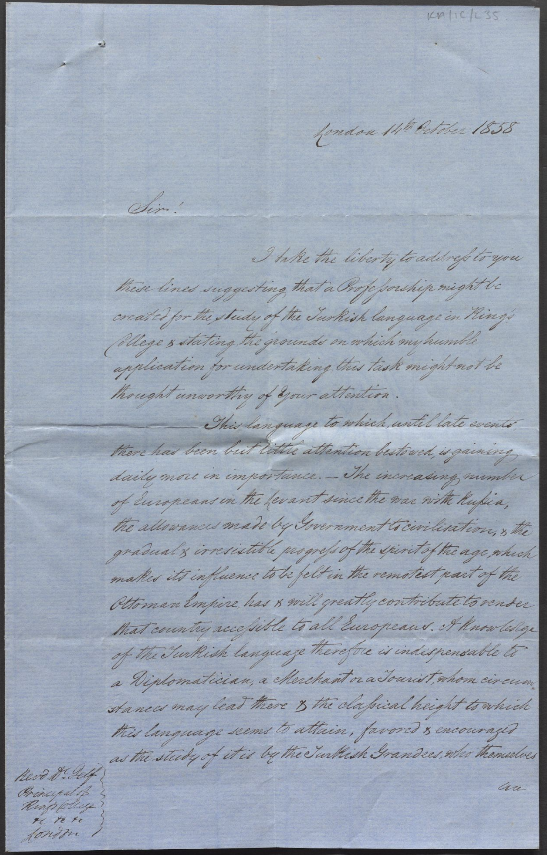 KA/IC/L35
London 14th October 1858
Sir!
I take the liberty to address to you
these lines suggesting that a Professorship might be
created for the study of the Turkish language in King's
College & stating the grounds on which my humble
application for undertaking this task might not be
thought unworthy of Your attention.
This language to which, until late events
there has been but little attention bestowed, is gaining
daily more in importance. — The increasing number
of Europeans in the Levant since the war with Russia,
the allowances made by Government to civilization, & the
gradual & irresistible progress of the spirit of the age, which
makes its influence to be felt in the remotest part of the
Ottoman Empire has & will greatly contribute to render
that country accessible to all Europeans. A knowledge
of the Turkish language therefore is indispensable to
a Diplomatician, a Merchant or a Tourist whom circum-
stances may lead there & the classical height to which
this language seems to attain, favored & encouraged
as the study of it is by the Turkish Grandees, who themselves
are
Revd Dr Jelf
Principal of
King's College
&c &c &c
London